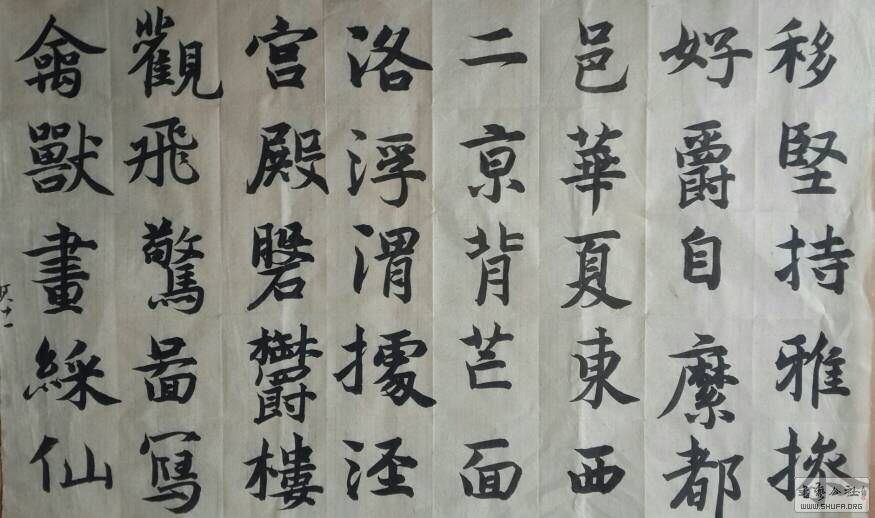 移堅持雅操
好爵自縻都
邑華夏東西
二亰背芒面
洛浮渭據涇
宮殿磐鬱樓
觀飛驚啚寫
禽獸畫綵仙
WWW.SHUFA.ORG